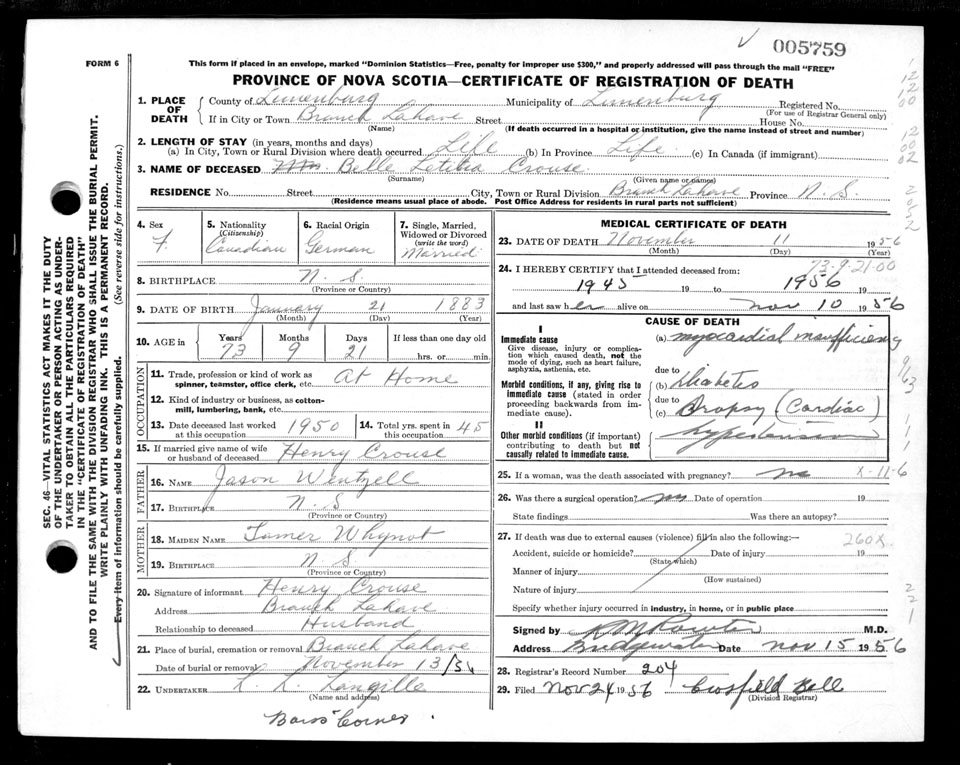 005759
FORM 6
This form if placed in an envelope, marked "Dominion Statistics—Free, penalty for improper use $300," and properly addressed will pass through the mail "FREE"
PROVINCE OF NOVA SCOTIA—CERTIFICATE OF REGISTRATION OF DEATH
1. PLACE OF DEATH
County of Lunenburg Municipality of Lunenburg Registered No.
(For use of Registrar General only)
If in City or Town Branch Lahave Street House No.
(Name) (If death occurred in a hospital or institution, give the name instead of street and number)
2. LENGTH OF STAY (in years, months and days)
(a) In City, Town or Rural Division where death occurred Life (b) In Province Life (c) In Canada (if immigrant)
3. NAME OF DECEASED Mrs Belle Letitia Crouse
(Surname) (Given name or names)
RESIDENCE No. Street City, Town or Rural Division Branch Lahave Province N. S.
(Residence means usual place of abode. Post Office Address for residents in rural parts not sufficient)
4. Sex
F.
5. Nationality
(Citizenship)
Canadian
6. Racial Origin
German
7. Single, Married, Widowed or Divorced
(write the word)
Married
8. BIRTHPLACE N. S.
(Province or Country)
9. DATE OF BIRTH January 21 1883
(Month) (Day) (Year)
10. AGE in
Years Months Days If less than one day old
73 9 21 hrs. or min.
OCCUPATION
11. Trade, profession or kind of work as spinner, teamster, office clerk, etc. At Home
12. Kind of industry or business, as cotton-mill, lumbering, bank, etc.
13. Date deceased last worked at this occupation 1950
14. Total yrs. spent in this occupation 45
15. If married give name of wife or husband of deceased Henry Crouse
FATHER
16. NAME Jason Wentzell
17. BIRTHPLACE N. S
(Province or Country)
MOTHER
18. MAIDEN NAME Tamer Whynot
19. BIRTHPLACE N S
(Province or Country)
20. Signature of informant Henry Crouse
Address Branch Lahave
Relationship to deceased Husband
21. Place of burial, cremation or removal Branch Lahave
Date of burial or removal November 13/56
22. UNDERTAKER K. L. Langille
(Name and address)
Corner
MEDICAL CERTIFICATE OF DEATH
23. DATE OF DEATH November 11 1956
(Month) (Day) (Year)
73-9-21-00
24. I HEREBY CERTIFY that I attended deceased from:
1945 19 to 1956 19
and last saw her alive on Nov 10 1956
CAUSE OF DEATH
I
Immediate cause
Give disease, injury or complication which caused death, not the mode of dying, such as heart failure, asphyxia, asthenia, etc.
(a) myocardial insufficiency
due to
Morbid conditions, if any, giving rise to immediate cause (stated in order proceeding backwards from immediate cause).
(b) Diabetes
due to
(c) Dropsy (Cardiac)
II
Other morbid conditions (if important) contributing to death but not causally related to immediate cause.
hypertension
25. If a woman, was the death associated with pregnancy? no
X-11-6
26. Was there a surgical operation? no Date of operation 19
State findings Was there an autopsy?
27. If death was due to external causes (violence) fill in also the following:—
260X
Accident, suicide or homicide? Date of injury 19
(State which)
Manner of injury
(How sustained)
Nature of injury
Specify whether injury occurred in industry, in home, or in public place
Signed by M.D.
Address Bridgewater Date Nov 15 1956
28. Registrar's Record Number 204
29. Filed Nov 24 1956 Crosfield Bell
(Division Registrar)
SEC. 46—VITAL STATISTICS ACT MAKES IT THE DUTY
OF THE UNDERTAKER OR PERSON ACTING AS UNDER-
TAKER TO OBTAIN ALL THE PARTICULARS REQUIRED
IN THE "CERTIFICATE OF REGISTRATION OF DEATH"
AND TO FILE THE SAME WITH THE DIVISION REGISTRAR WHO SHALL ISSUE THE BURIAL PERMIT.
WRITE PLAINLY WITH UNFADING INK. THIS IS A PERMANENT RECORD.
Every item of information should be carefully supplied. (See reverse side for instructions.)